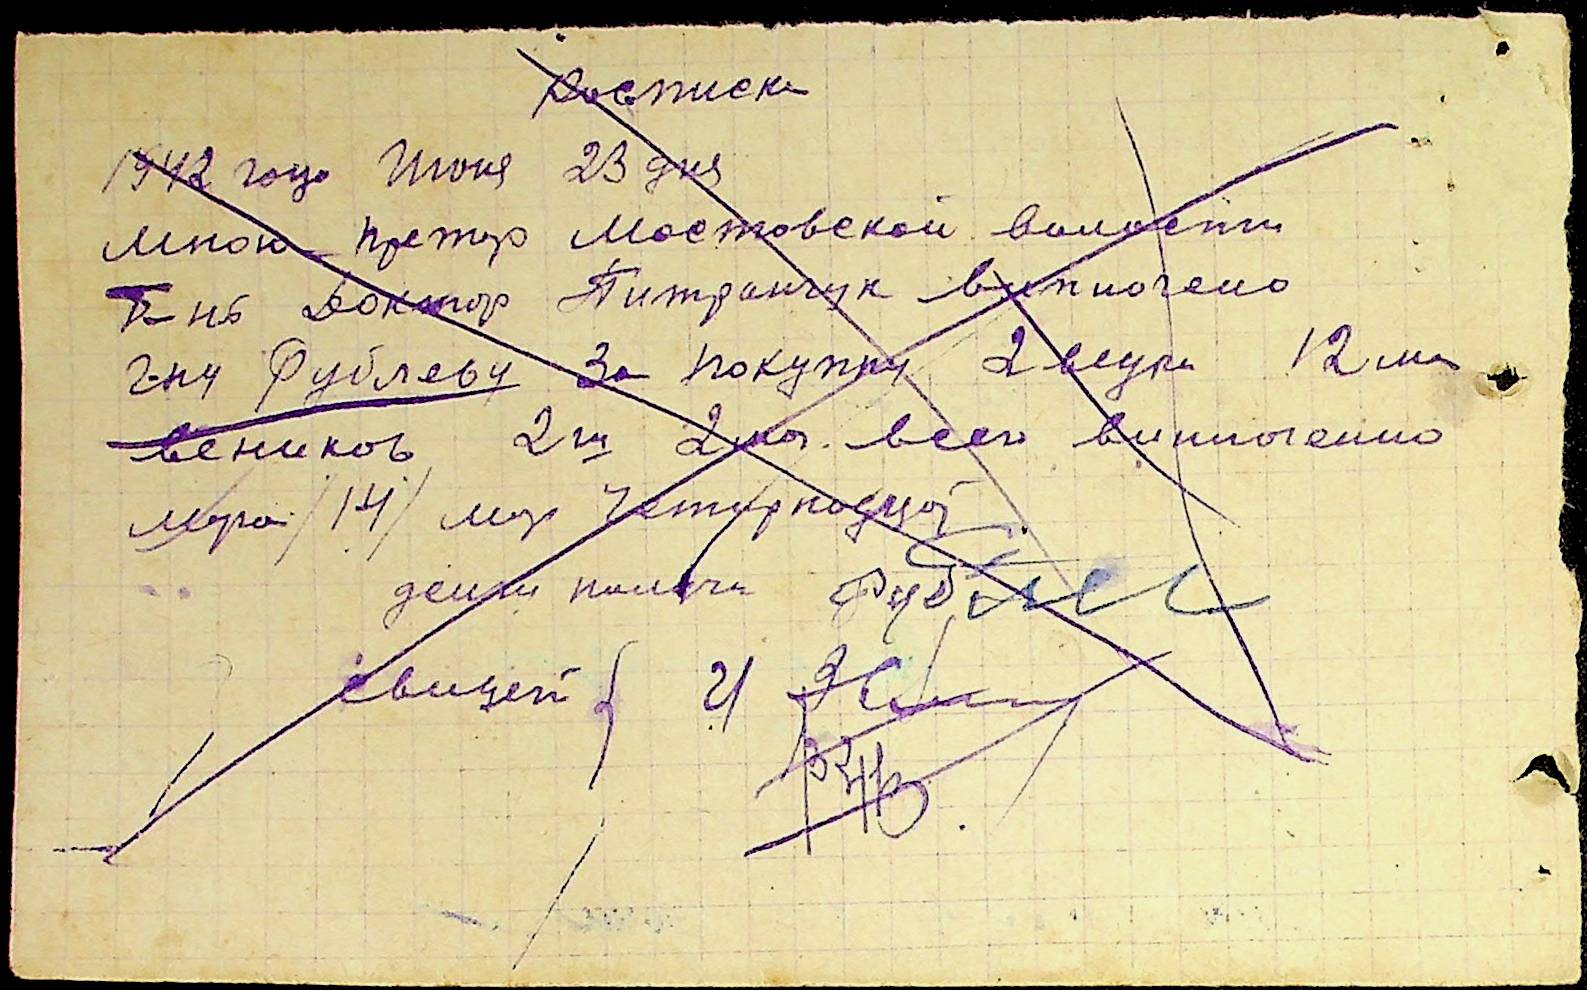 Росписка
1942 года Июня 23 дня
Мною претор Мостовской волости
Г-нъ Доктор Питранчук виплочено
г-ну Рублеву За покупку 2 ведра 12 ма
веников 2 шт 2 мар. всего виплоченно
марак /14/ мар Четырнадцать
деньги получи Рублев
свидет { 1/